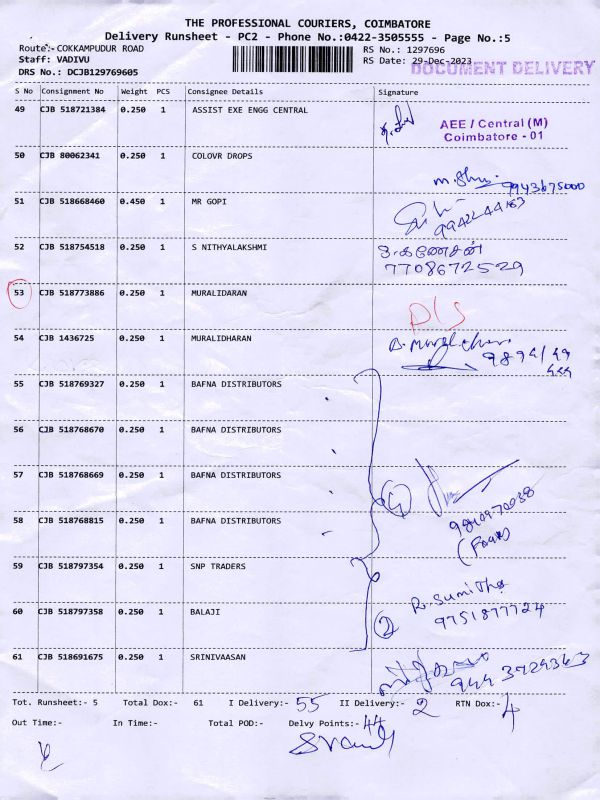 THE PROFESSIONAL COURIERS, COIMBATORE
Delivery Runsheet - PC2 - Phone No.:0422-3505555 - Page No.:5
Route:- COKKAMPUDUR ROAD RS No.: 1297696
Staff: VADIVU RS Date: 29-Dec-2023
DRS No.: DCJB129769605 DOCUMENT DELIVERY
S No Consignment No Weight PCS Consignee Details Signature
49 CJB 518721384 0.250 1 ASSIST EXE ENGG CENTRAL
AEE / Central (M)
Coimbatore - 01
50 CJB 80062341 0.250 1 COLOVR DROPS
9943675000
51 CJB 518668460 0.450 1 MR GOPI
52 CJB 518754518 0.250 1 S NITHYALAKSHMI
கணேசன்
7708672529
53 CJB 518773886 0.250 1 MURALIDARAN
D/S
54 CJB 1436725 0.250 1 MURALIDHARAN
55 CJB 518769327 0.250 1 BAFNA DISTRIBUTORS
56 CJB 518768670 0.250 1 BAFNA DISTRIBUTORS
57 CJB 518768669 0.250 1 BAFNA DISTRIBUTORS
58 CJB 518768815 0.250 1 BAFNA DISTRIBUTORS
59 CJB 518797354 0.250 1 SNP TRADERS
R. Sumitha
60 CJB 518797358 0.250 1 BALAJI
2 9751877724
61 CJB 518691675 0.250 1 SRINIVAASAN
944 3724363
Tot. Runsheet:- 5 Total Dox:- 61 I Delivery:- 55 II Delivery:- 2 RTN Dox:- 4
Out Time:- In Time:- Total POD:- Delvy Points:- 44